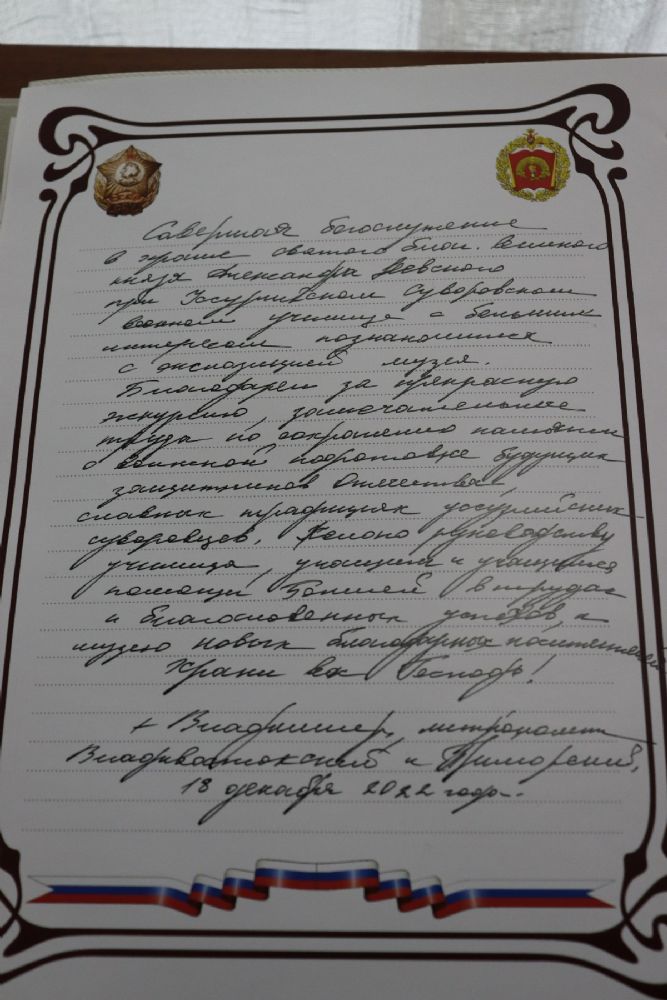 Совершая богослужение
в храме святого благ. великого
князя Александра Невского
при Уссурийском суворовском
военном училище с большим
интересом познакомился
с экспозицией музея.
Благодарен за прекрасную
экскурсию, замечательные
труды по сохранению памяти
о воинской подготовке будущих
защитников Отечества,
славных традициях уссурийских
суворовцев. Желаю руководству
училища, учащим и учащимся
помощи Божией в трудах
и благословенных успехов, а
музею новых благодарных посетителей.
Храни вас Господь!
+ Владимир, митрополит
Владивостокский и Приморский.
18 декабря 2022 года.